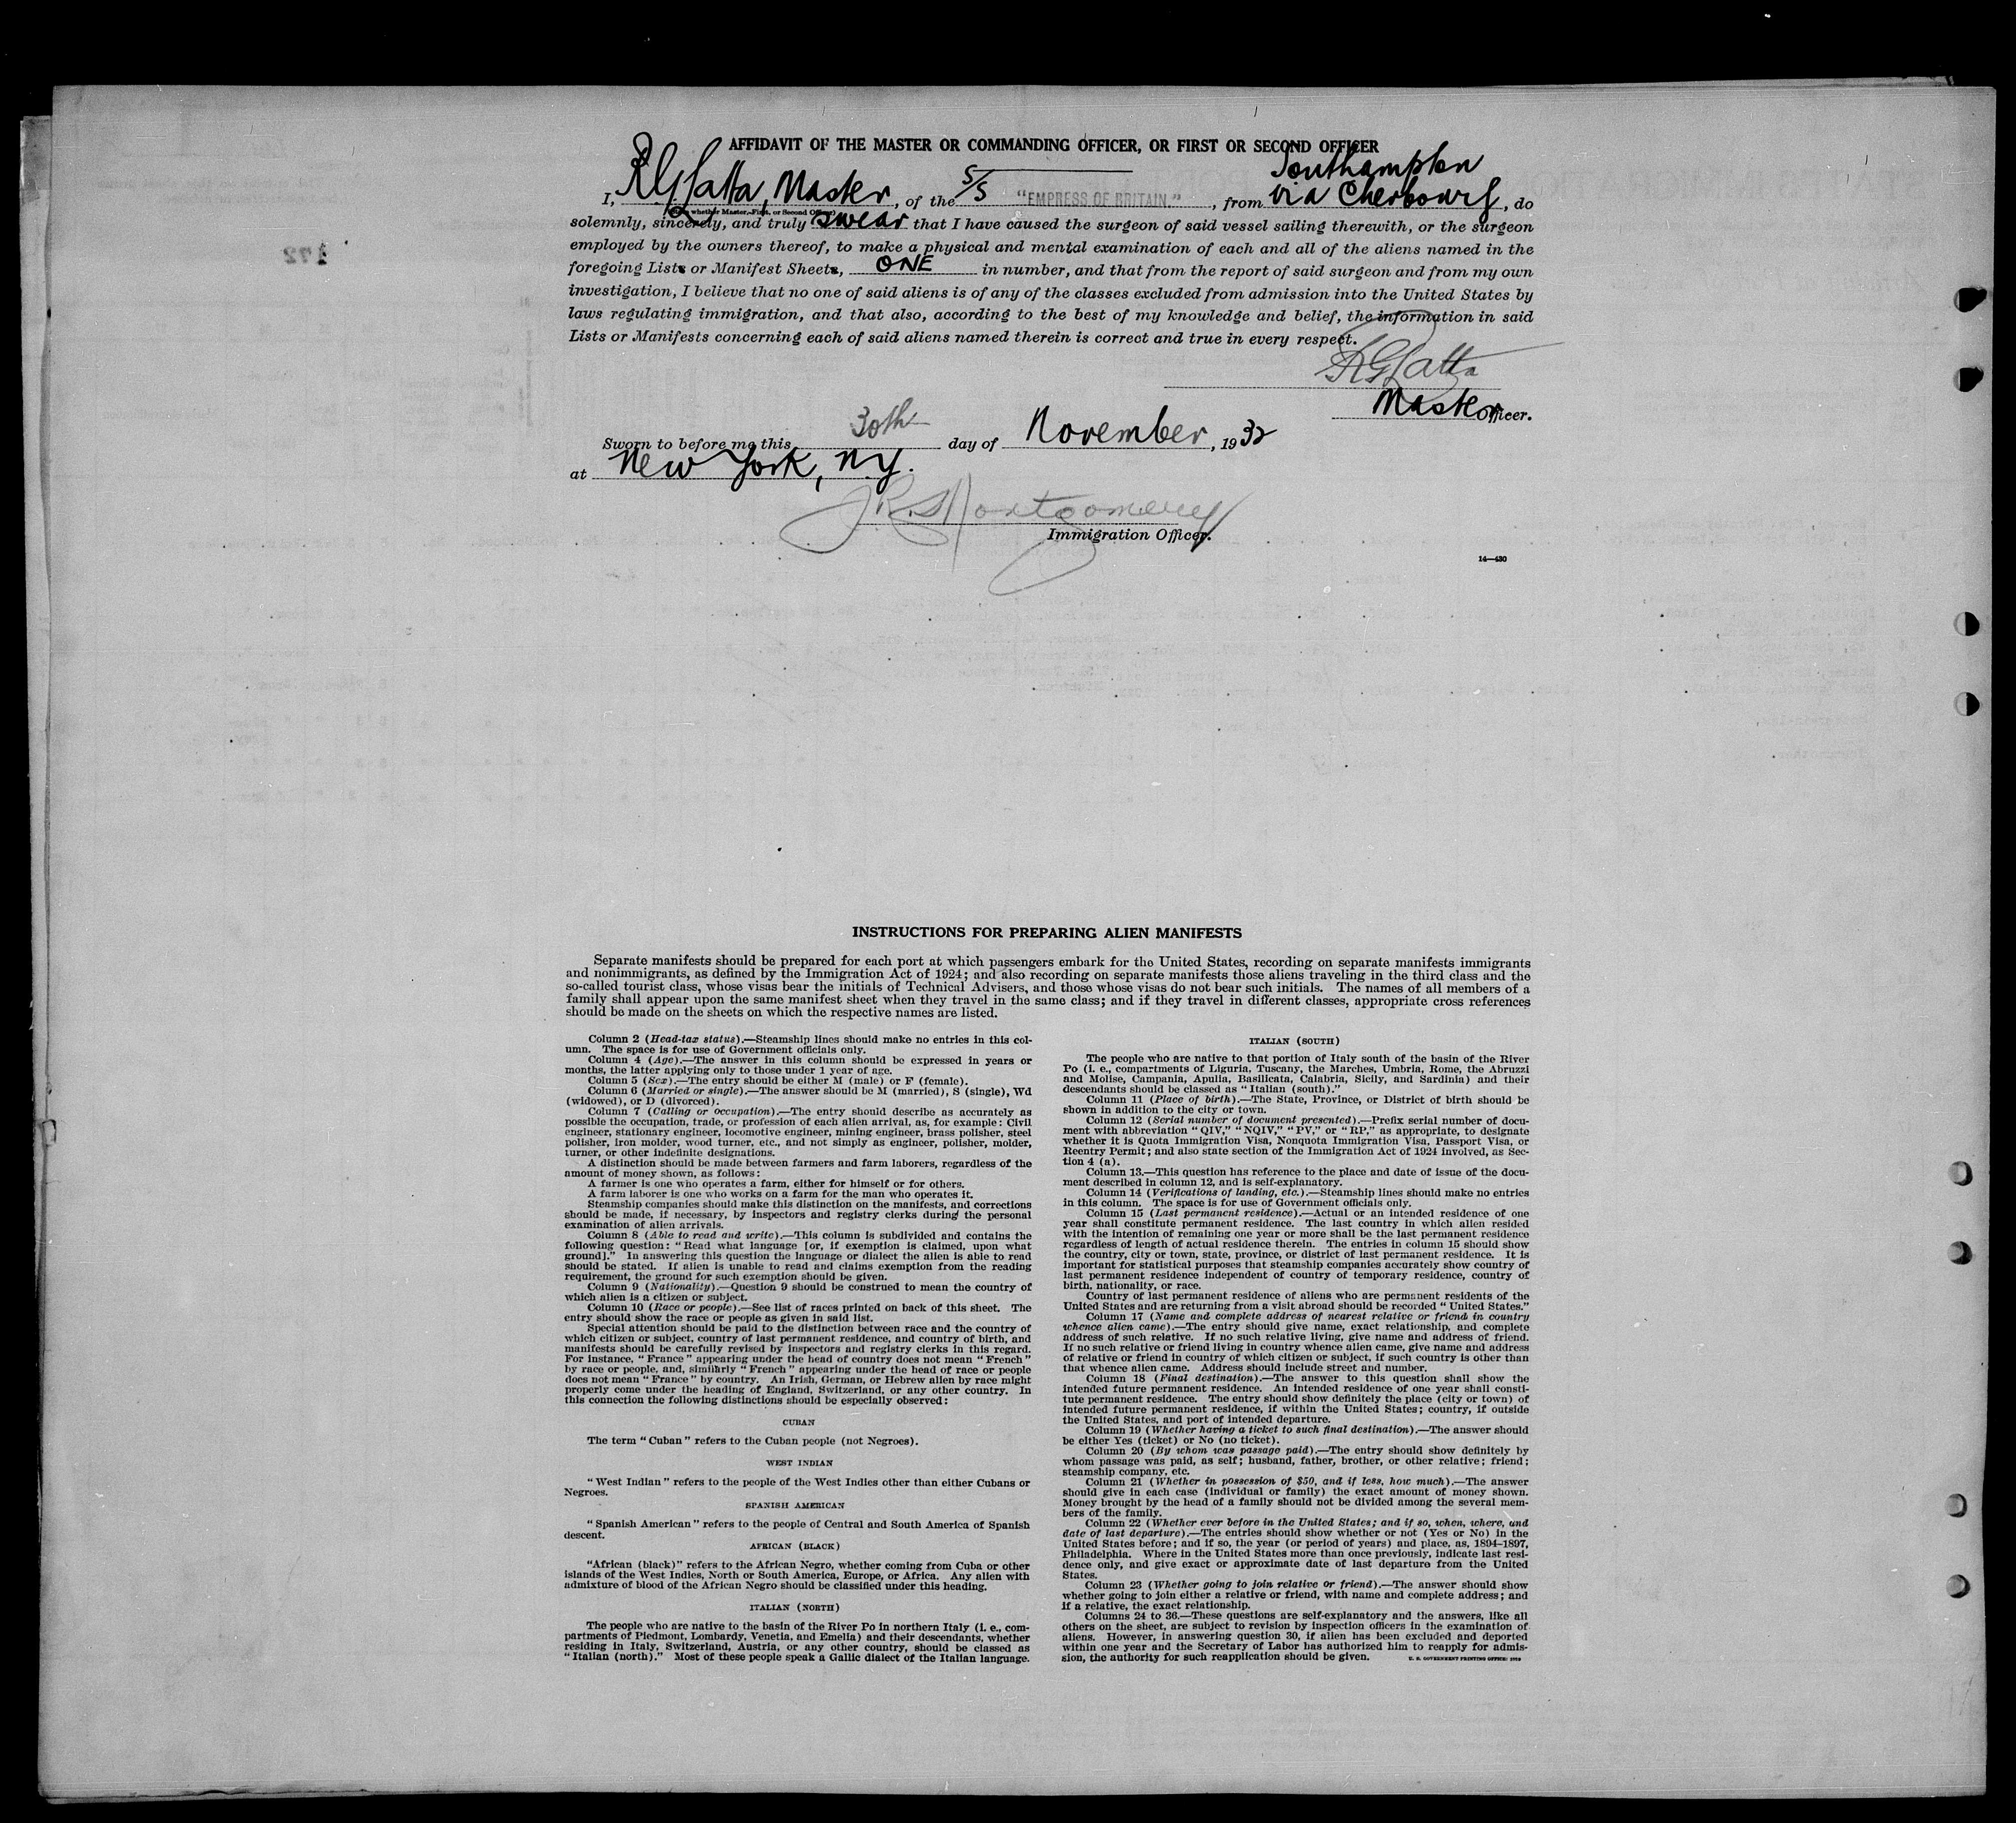 AFFIDAVIT OF THE MASTER OR COMMANDING OFFICER, OR FIRST OR SECOND OFFICER
Southampton
I, R G Latta, Master, of the S/S "EMPRESS OF BRITAIN.", from via Cherbourg, do
solemnly, sincerely, and truly swear that I have caused the surgeon of said vessel sailing therewith, or the surgeon
employed by the owners thereof, to make a physical and mental examination of each and all of the aliens named in the
foregoing Lists or Manifest Sheets, ONE in number, and that from the report of said surgeon and from my own
investigation, I believe that no one of said aliens is of any of the classes excluded from admission into the United States by
laws regulating immigration, and that also, according to the best of my knowledge and belief, the information in said
Lists or Manifests concerning each of said aliens named therein is correct and true in every respect.
R G Latta
Master Officer.
Sworn to before me this 30th day of November, 1932
at New York, N.Y.
J. R. Montgomery
Immigration Officer.
14—430
INSTRUCTIONS FOR PREPARING ALIEN MANIFESTS
Separate manifests should be prepared for each port at which passengers embark for the United States, recording on separate manifests immigrants
and nonimmigrants, as defined by the Immigration Act of 1924; and also recording on separate manifests those aliens traveling in the third class and the
so-called tourist class, whose visas bear the initials of Technical Advisers, and those whose visas do not bear such initials. The names of all members of a
family shall appear upon the same manifest sheet when they travel in the same class; and if they travel in different classes, appropriate cross references
should be made on the sheets on which the respective names are listed.
Column 2 (Head-tax status).—Steamship lines should make no entries in this col-
umn. The space is for use of Government officials only.
Column 4 (Age).—The answer in this column should be expressed in years or
months, the latter applying only to those under 1 year of age.
Column 5 (Sex).—The entry should be either M (male) or F (female).
Column 6 (Married or single).—The answer should be M (married), S (single), Wd
(widowed), or D (divorced).
Column 7 (Calling or occupation).—The entry should describe as accurately as
possible the occupation, trade, or profession of each alien arrival, as, for example: Civil
engineer, stationary engineer, locomotive engineer, mining engineer, brass polisher, steel
polisher, iron molder, wood turner, etc., and not simply as engineer, polisher, molder,
turner, or other indefinite designations.
A distinction should be made between farmers and farm laborers, regardless of the
amount of money shown, as follows:
A farmer is one who operates a farm, either for himself or for others.
A farm laborer is one who works on a farm for the man who operates it.
Steamship companies should make this distinction on the manifests, and corrections
should be made, if necessary, by inspectors and registry clerks during the personal
examination of alien arrivals.
Column 8 (Able to read and write).—This column is subdivided and contains the
following question: "Read what language [or, if exemption is claimed, upon what
ground]." In answering this question the language or dialect the alien is able to read
should be stated. If alien is unable to read and claims exemption from the reading
requirement, the ground for such exemption should be given.
Column 9 (Nationality).—Question 9 should be construed to mean the country of
which alien is a citizen or subject.
Column 10 (Race or people).—See list of races printed on back of this sheet. The
entry should show the race or people as given in said list.
Special attention should be paid to the distinction between race and the country of
which citizen or subject, country of last permanent residence, and country of birth, and
manifests should be carefully revised by inspectors and registry clerks in this regard.
For instance, "France" appearing under the head of country does not mean "French"
by race or people, and, similarly "French" appearing under the head of race or people
does not mean "France" by country. An Irish, German, or Hebrew alien by race might
properly come under the heading of England, Switzerland, or any other country. In
this connection the following distinctions should be especially observed:
CUBAN
The term "Cuban" refers to the Cuban people (not Negroes).
WEST INDIAN
"West Indian" refers to the people of the West Indies other than either Cubans or
Negroes.
SPANISH AMERICAN
"Spanish American" refers to the people of Central and South America of Spanish
descent.
AFRICAN (BLACK)
"African (black)" refers to the African Negro, whether coming from Cuba or other
islands of the West Indies, North or South America, Europe, or Africa. Any alien with
admixture of blood of the African Negro should be classified under this heading.
ITALIAN (NORTH)
The people who are native to the basin of the River Po in northern Italy (i. e., com-
partments of Piedmont, Lombardy, Venetia, and Emelia) and their descendants, whether
residing in Italy, Switzerland, Austria, or any other country, should be classed as
"Italian (north)." Most of these people speak a Gallic dialect of the Italian language.
ITALIAN (SOUTH)
The people who are native to that portion of Italy south of the basin of the River
Po (i. e., compartments of Liguria, Tuscany, the Marches, Umbria, Rome, the Abruzzi
and Molise, Campania, Apulia, Basilicata, Calabria, Sicily, and Sardinia) and their
descendants should be classed as "Italian (south)."
Column 11 (Place of birth).—The State, Province, or District of birth should be
shown in addition to the city or town.
Column 12 (Serial number of document presented).—Prefix serial number of docu-
ment with abbreviation "QIV," "NQIV," "PV," or "RP," as appropriate, to designate
whether it is Quota Immigration Visa, Nonquota Immigration Visa, Passport Visa, or
Reentry Permit; and also state section of the Immigration Act of 1924 involved, as Sec-
tion 4 (a).
Column 13.—This question has reference to the place and date of issue of the docu-
ment described in column 12, and is self-explanatory.
Column 14 (Verifications of landing, etc.).—Steamship lines should make no entries
in this column. The space is for use of Government officials only.
Column 15 (Last permanent residence).—Actual or an intended residence of one
year shall constitute permanent residence. The last country in which alien resided
with the intention of remaining one year or more shall be the last permanent residence
regardless of length of actual residence therein. The entries in column 15 should show
the country, city or town, state, province, or district of last permanent residence. It is
important for statistical purposes that steamship companies accurately show country of
last permanent residence independent of country of temporary residence, country of
birth, nationality, or race.
Country of last permanent residence of aliens who are permanent residents of the
United States and are returning from a visit abroad should be recorded "United States."
Column 17 (Name and complete address of nearest relative or friend in country
whence alien came).—The entry should give name, exact relationship, and complete
address of such relative. If no such relative living, give name and address of friend.
If no such relative or friend living in country whence alien came, give name and address
of relative or friend in country of which citizen or subject, if such country is other than
that whence alien came. Address should include street and number.
Column 18 (Final destination).—The answer to this question shall show the
intended future permanent residence. An intended residence of one year shall consti-
tute permanent residence. The entry should show definitely the place (city or town) of
intended future permanent residence, if within the United States; country, if outside
the United States, and port of intended departure.
Column 19 (Whether having a ticket to such final destination).—The answer should
be either Yes (ticket) or No (no ticket).
Column 20 (By whom was passage paid).—The entry should show definitely by
whom passage was paid, as self; husband, father, brother, or other relative; friend;
steamship company, etc.
Column 21 (Whether in possession of $50, and if less, how much).—The answer
should give in each case (individual or family) the exact amount of money shown.
Money brought by the head of a family should not be divided among the several mem-
bers of the family.
Column 22 (Whether ever before in the United States; and if so, when, where, and
date of last departure).—The entries should show whether or not (Yes or No) in the
United States before; and if so, the year (or period of years) and place, as, 1894-1897,
Philadelphia. Where in the United States more than once previously, indicate last resi-
dence only, and give exact or approximate date of last departure from the United
States.
Column 23 (Whether going to join relative or friend).—The answer should show
whether going to join either a relative or friend, with name and complete address; and
if a relative, the exact relationship.
Columns 24 to 36.—These questions are self-explanatory and the answers, like all
others on the sheet, are subject to revision by inspection officers in the examination of
aliens. However, in answering question 30, if alien has been excluded and deported
within one year and the Secretary of Labor has authorized him to reapply for admis-
sion, the authority for such reapplication should be given.
U. S. GOVERNMENT PRINTING OFFICE: